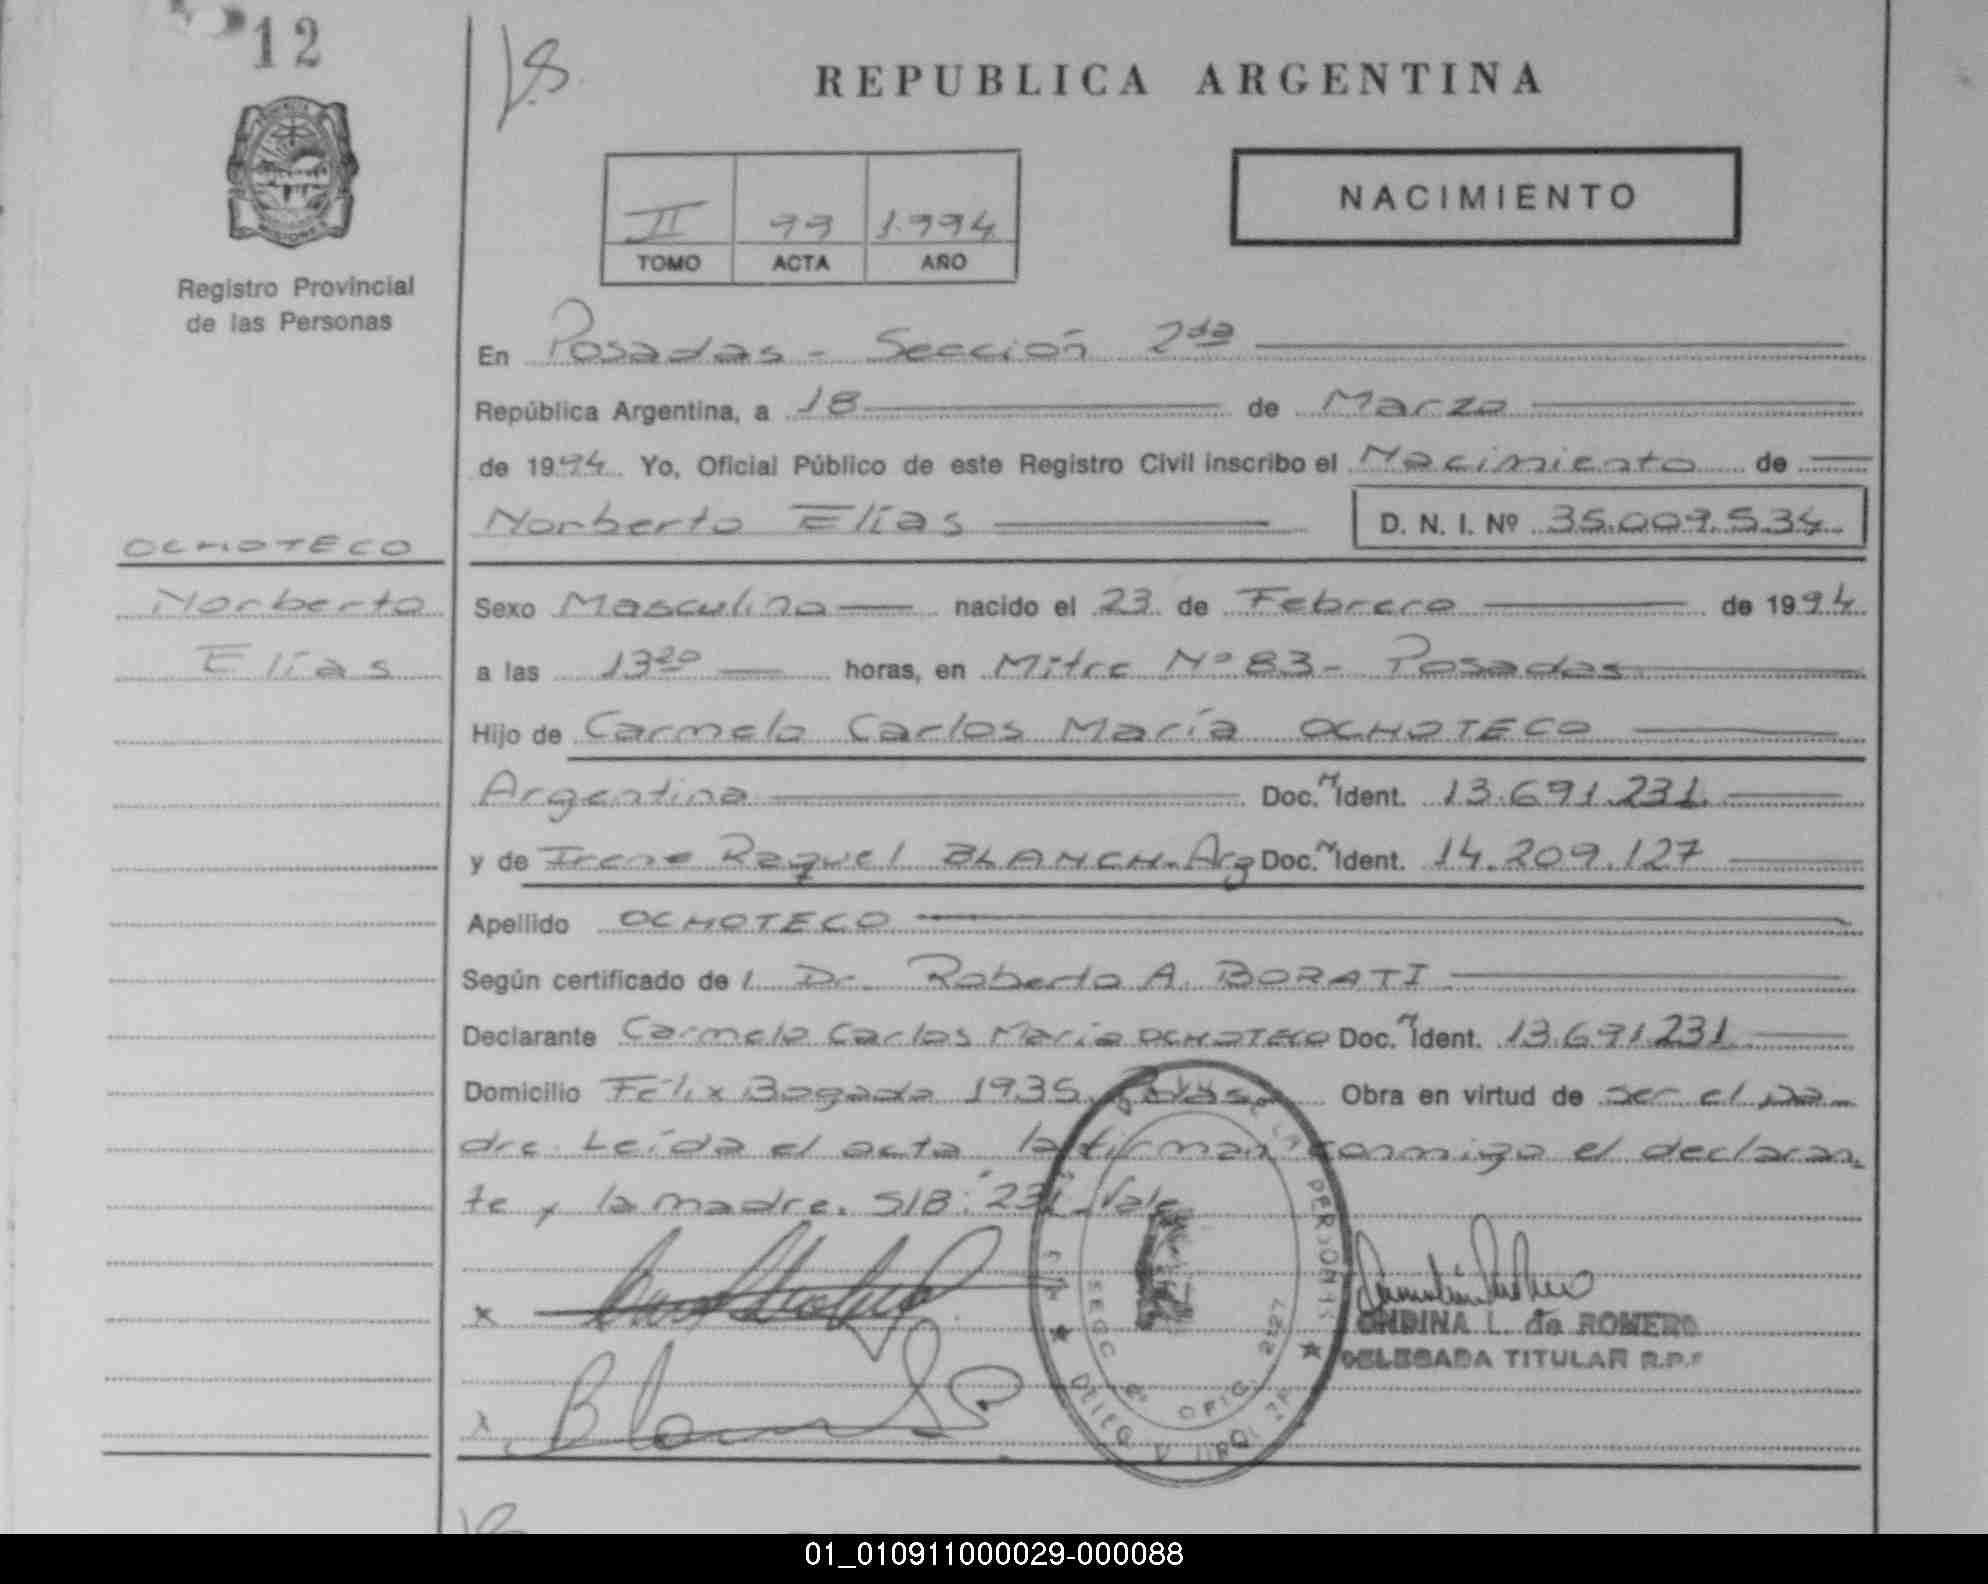 12
REPUBLICA ARGENTINA
NACIMIENTO
II 99 1.994
TOMO ACTA AÑO
Registro Provincial
de las Personas
En Posadas - Sección 2da
República Argentina, a 18 de Marzo
de 1994 Yo, Oficial Público de este Registro Civil inscribo el Nacimiento de
Norberto Elías D. N. I. Nº 35.009.534
OCHOTECO
Norberto
Elías
Sexo Masculino nacido el 23 de Febrero de 1994
a las 13 20 horas, en Mitre Nº 83 - Posadas
Hijo de Carmelo Carlos María OCHOTECO
Argentina Doc. M Ident. 13.691.231
y de Irene Raquel BLANCH - Arg Doc. Ident. 14.209.127
Apellido OCHOTECO
Según certificado de l Dr. Roberto A. BORATTI
Declarante Carmelo Carlos María OCHOTECO Doc. Ident. 13.691.231
Domicilio Félix Bogado 1935. Pdas. Obra en virtud de ser el pa-
dre. Leída el acta la firman conmigo el declaran-
te y la madre. S/B: "231" Vale
x
x
SECC 2ª OFIC. 2127
PERSONAS
ONDINA L. de ROMERO
DELEGADA TITULAR R.P.P
01_010911000029-000088